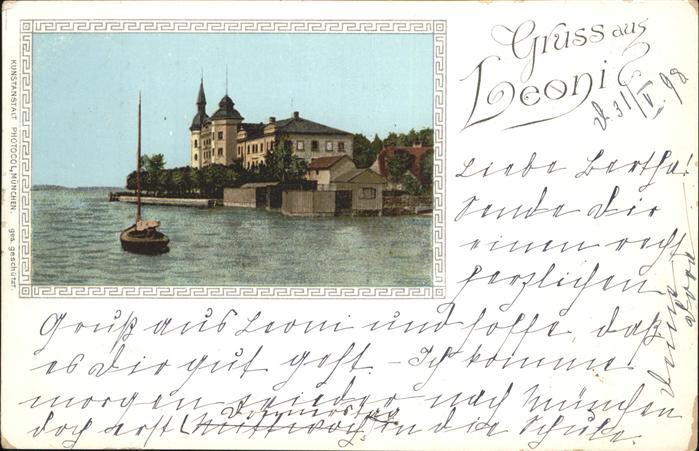 Gruss aus
Leoni
d. 31/V. 98
Liebe Bertha!
Sende Dir
einen recht
herzlichen
Gruß aus Leoni und hoffe, daß
es Dir gut geht. – Ich komme
morgen wieder nach München
doch erst Donnerstag
Mittwoch in die Schule.
Deine
KUNSTANSTALT PHOTOCOL, MÜNCHEN. ges. geschützt.